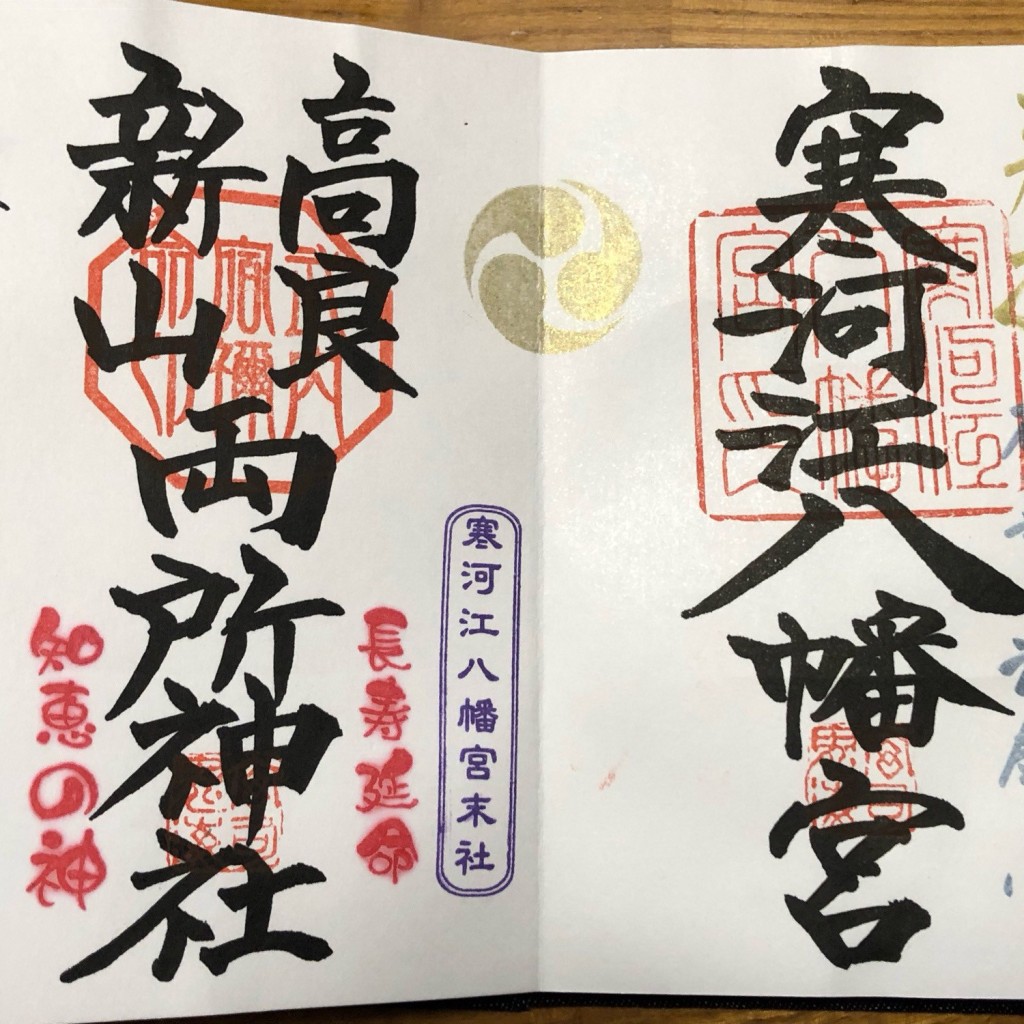 寒河江八幡宮
寒河江
八幡
寒河江八幡宮末社
長寿延命
高良
新山
両所神社
知恵の神